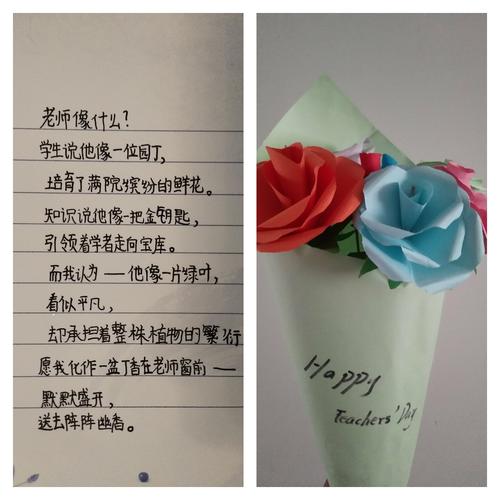 老师像什么?
学生说他像一位园丁,
培育了满院缤纷的鲜花。
知识说他像一把金钥匙,
引领着学者走向宝库。
而我认为——他像一片绿叶,
看似平凡,
却承担着整株植物的繁衍
愿我化作一盆丁香在老师窗前——
默默盛开,
送去阵阵幽香。
Happy
Teachers' Day